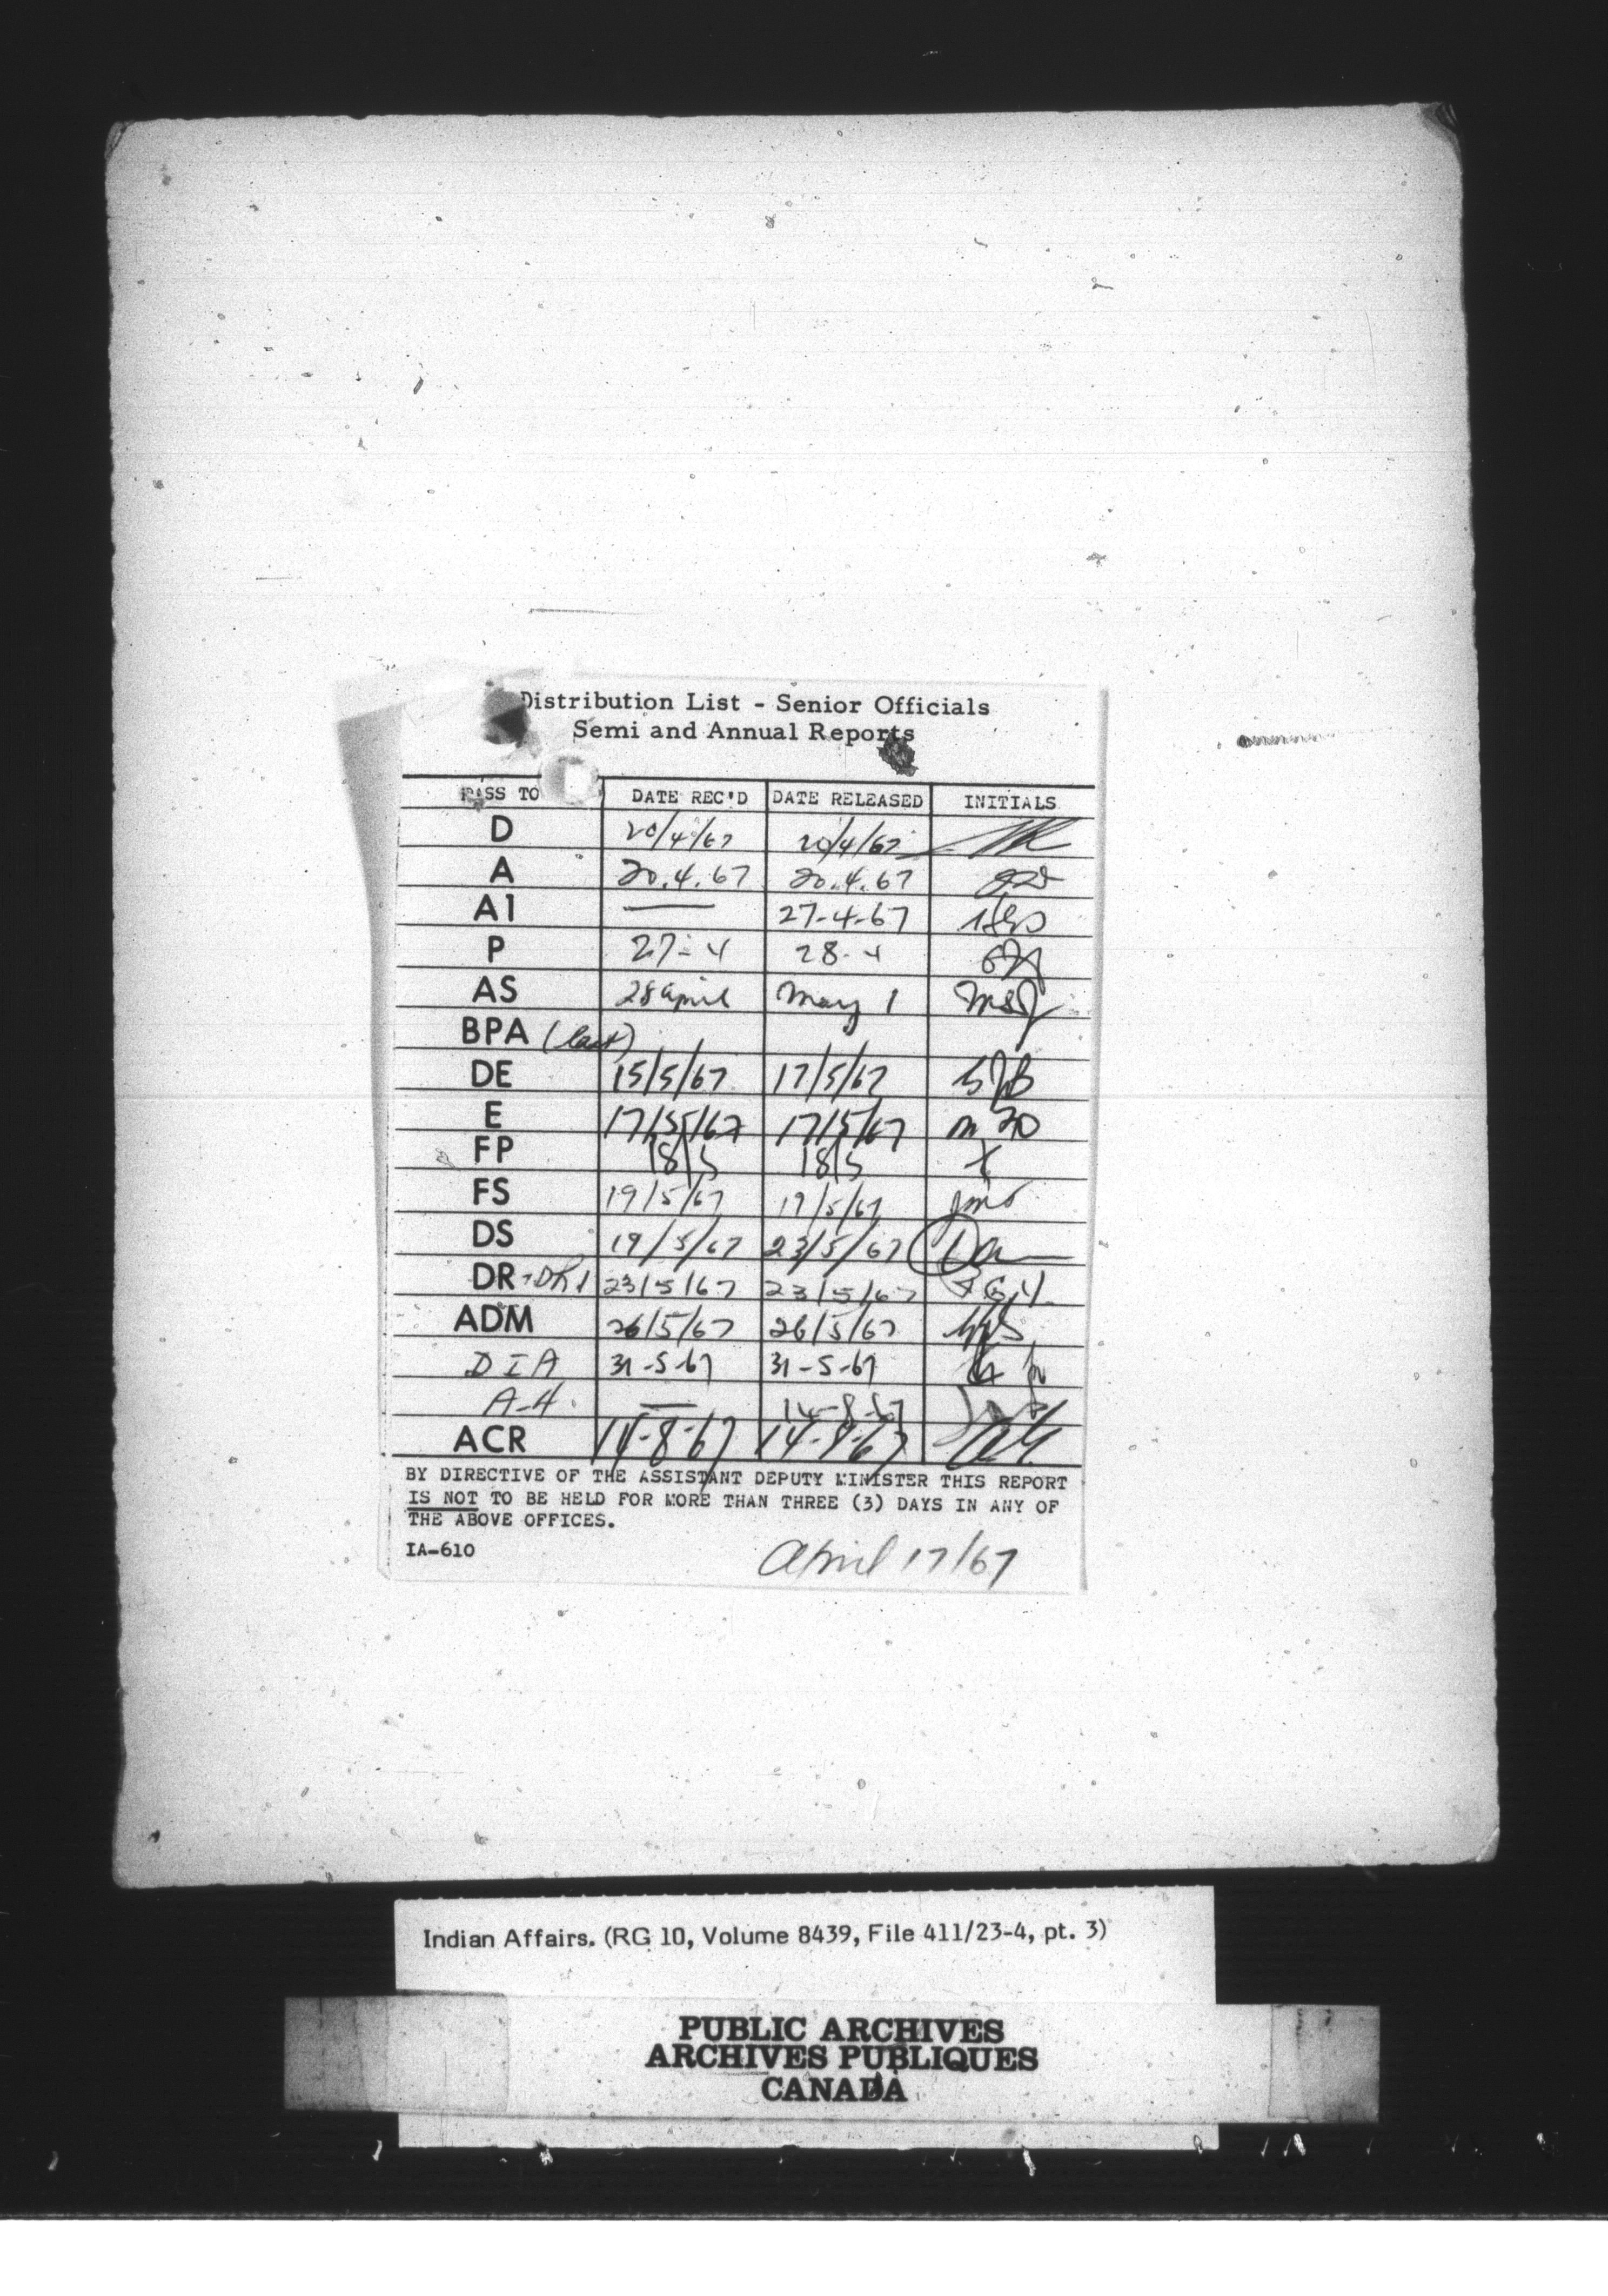 Distribution List - Senior Officials
Semi and Annual Reports
PASS TO DATE REC'D DATE RELEASED INITIALS
D 20/4/67 20/4/67
A 20.4.67 20.4.67
A1 — 27-4-67
P 27-4 28-4
AS 28 April May 1
BPA (last)
DE 15/5/67 17/5/67
E 17/5/67 17/5/67
FP 18/5 18/5
FS 19/5/67 19/5/67
DS 19/5/67 23/5/67
DR + DR1 23/5/67 23/5/67
ADM 26/5/67 26/5/67
DIA 31-5-67 31-5-67
A-H. — 14-8-67
ACR 14-8-67 14-8-67
BY DIRECTIVE OF THE ASSISTANT DEPUTY MINISTER THIS REPORT
IS NOT TO BE HELD FOR MORE THAN THREE (3) DAYS IN ANY OF
THE ABOVE OFFICES.
IA-610
April 17/67
Indian Affairs. (RG 10, Volume 8439, File 411/23-4, pt. 3)
PUBLIC ARCHIVES
ARCHIVES PUBLIQUES
CANADA